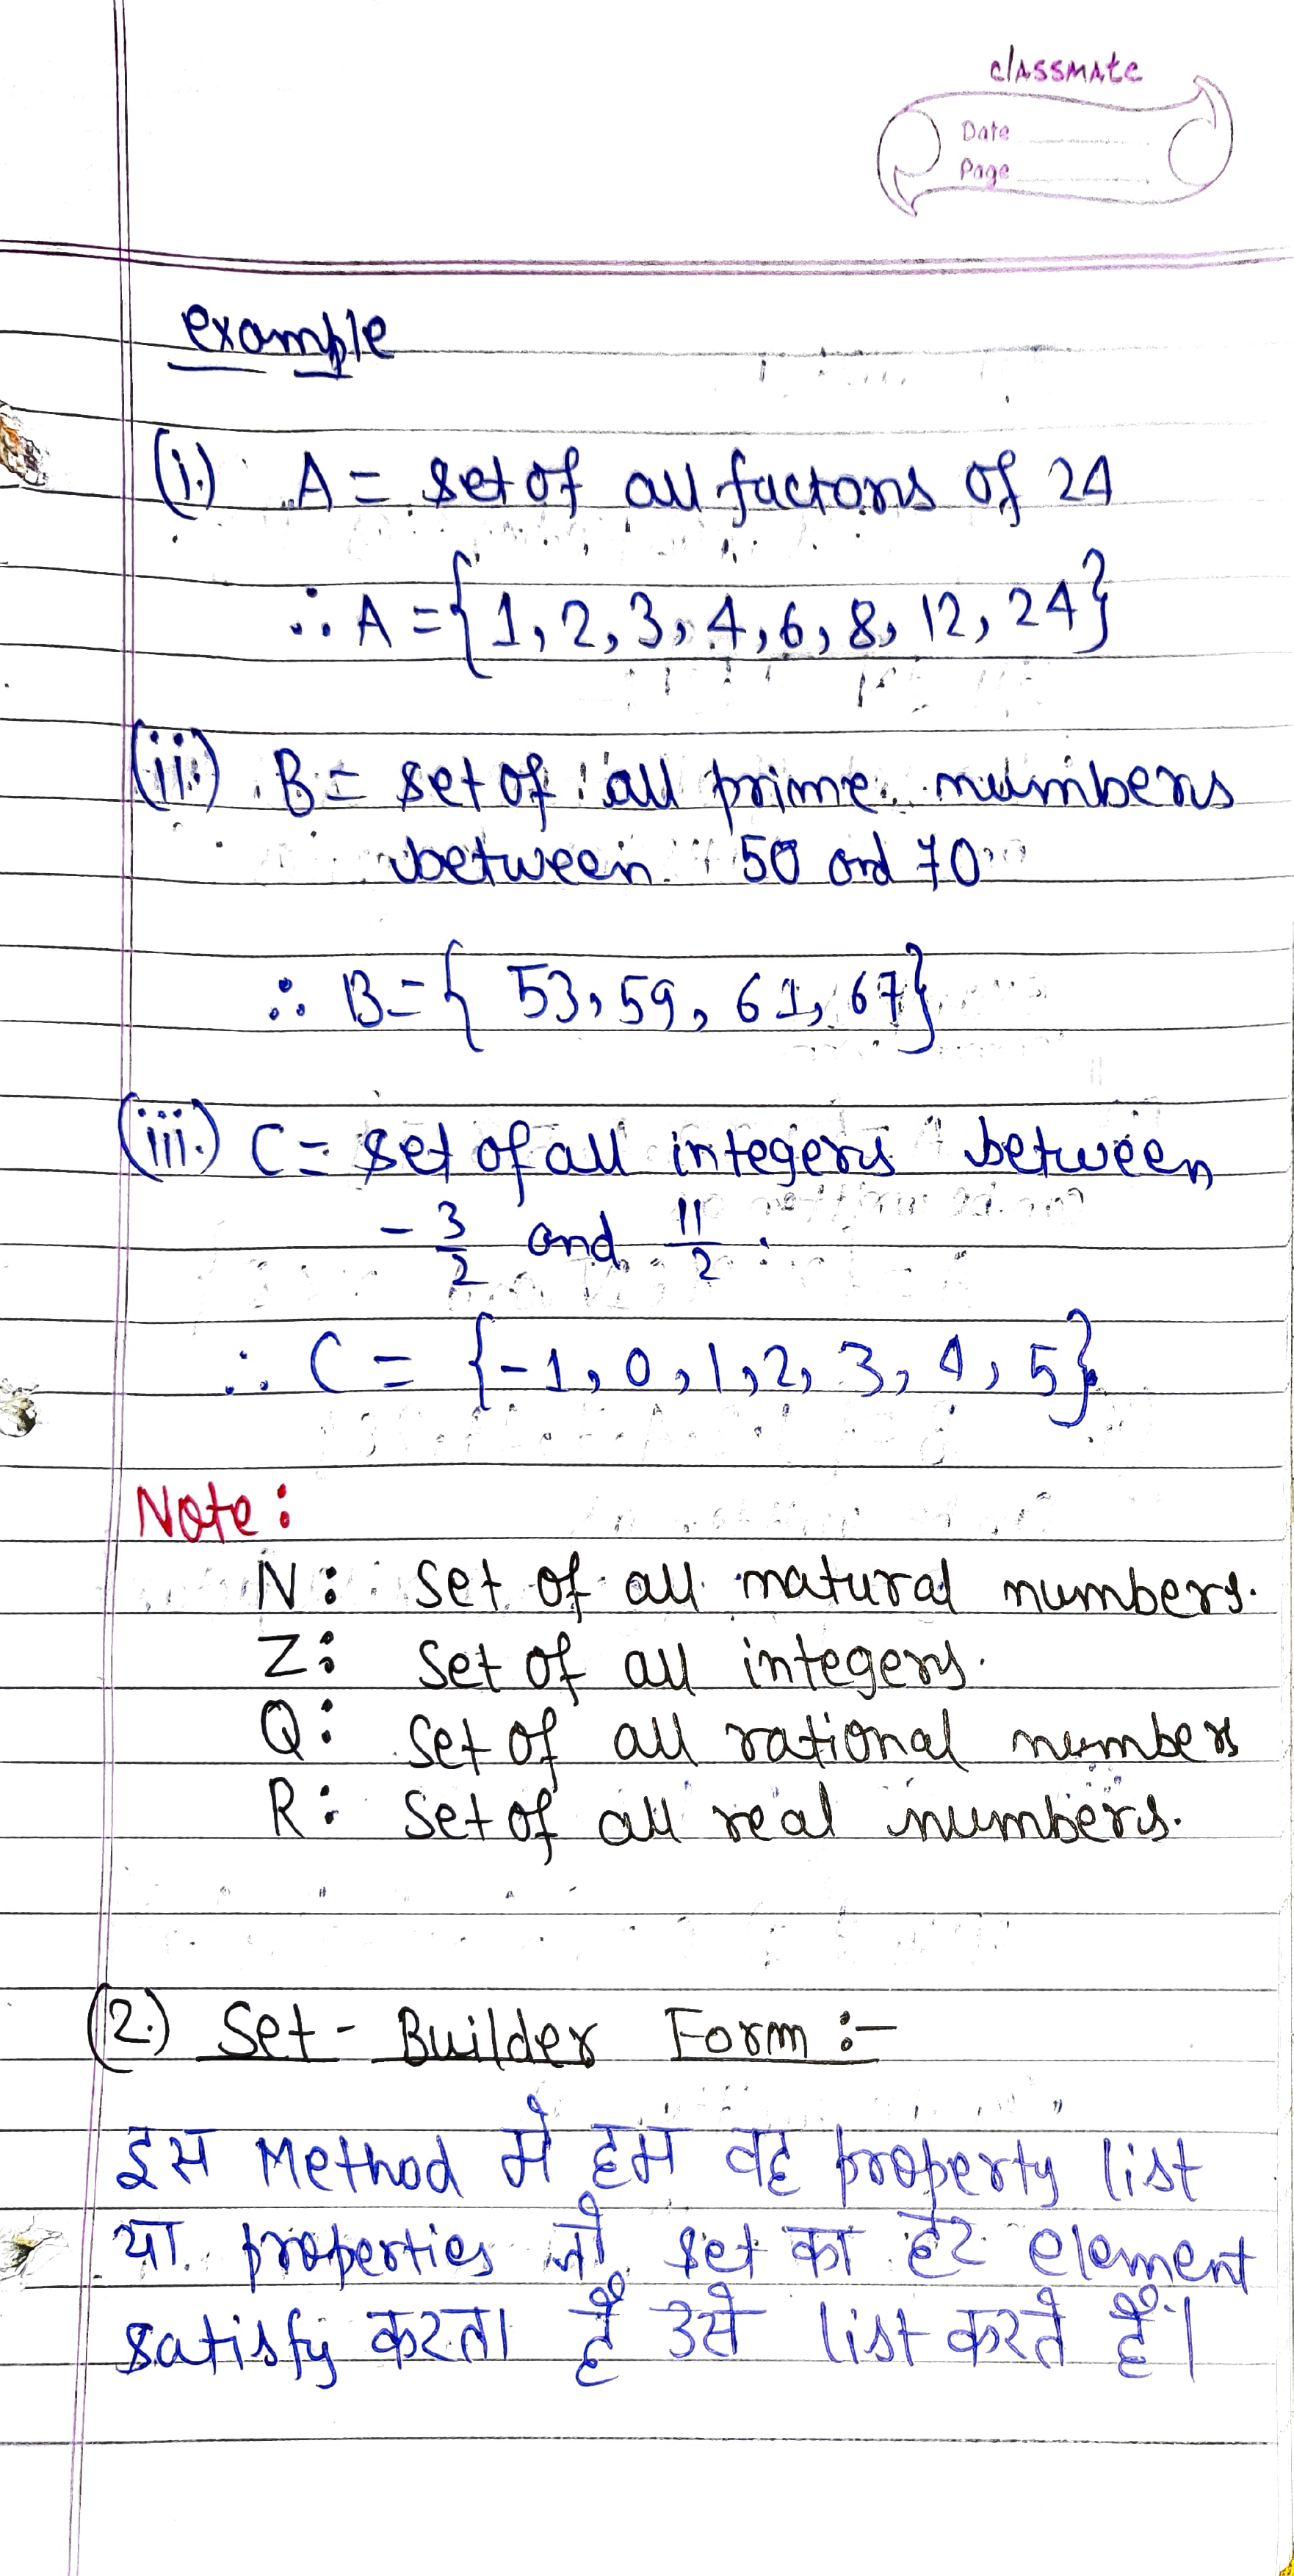 classmate
Date
Page
example
(i.) A = set of all factors of 24
∴ A = {1, 2, 3, 4, 6, 8, 12, 24}
(ii.) B = set of all prime numbers
between 50 and 70
∴ B = { 53, 59, 61, 67}
(iii.) C = set of all integers between
- 3/2 and 11/2.
∴ C = {-1, 0, 1, 2, 3, 4, 5}
Note:
N: Set of all natural numbers.
Z: Set of all integers.
Q: Set of all rational numbers
R: Set of all real numbers.
(2.) Set - Builder Form :-
इस Method मे हम वह property list
या properties जो set का हर element
satisfy करता है उसे list करते हैं।